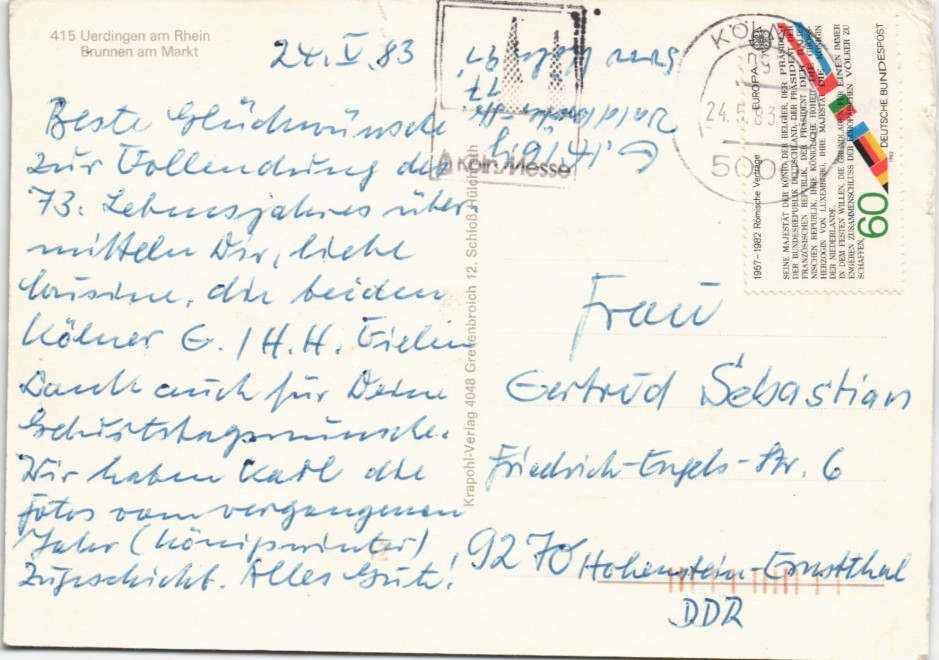 415 Uerdingen am Rhein
Brunnen am Markt
24.V.83
Beste Glückwünsche
zur Vollendung des
73. Lebensjahres über
mitteln Dir, liebe
Cusine, die beiden
Kölner G. / H.H.
Dank auch für Deine
Geburtstagswünsche.
Wir haben Karl die
Fotos vom vergangenen
Jahr (Königswinter)
zugeschickt. Alles Gute!
Krapohl-Verlag 4048 Grevenbroich 12, Schloß Hülchrath
Köln/Messe
KÖLN
24.5.83
500
1957–1982 Römische Verträge
EUROPA
SEINE MAJESTÄT DER KÖNIG DER BELGIER, DER PRÄSIDENT
DER BUNDESREPUBLIK DEUTSCHLAND, DER PRÄSIDENT DER
FRANZÖSISCHEN REPUBLIK, DER PRÄSIDENT DER ITALIE-
NISCHEN REPUBLIK, IHRE KÖNIGLICHE HOHEIT DIE GROSS-
HERZOGIN VON LUXEMBURG, IHRE MAJESTÄT DIE KÖNIGIN
DER NIEDERLANDE,
IN DEM FESTEN WILLEN, DIE GRUNDLAGEN FÜR EINEN IMMER
ENGEREN ZUSAMMENSCHLUSS DER EUROPÄISCHEN VÖLKER ZU
SCHAFFEN,
60
1982
DEUTSCHE BUNDESPOST
Frau
Gertrud Sebastian
Friedrich-Engels-Str. 6
9270 Hohenstein-Ernstthal
DDR